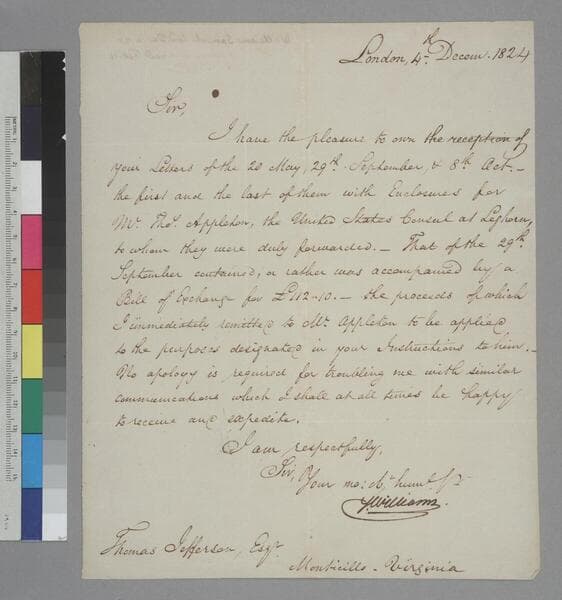 London, 4th Decem. 1824
Sir,
I have the pleasure to own the reception of
your Letters of the 20 May, 29th September, & 8th Oct. –
the first and the last of them with Enclosures for
Mr. Thos. Appleton, the United States Consul at Leghorn,
to whom they were duly forwarded. – That of the 29th
September contained, or rather was accompanied by a
Bill of Exchange for £112–10. – the proceeds of which
I immediately remitted to Mr. Appleton to be applied
to the purposes designated in your Instructions to him. –
No apology is required for troubling me with similar
communications which I shall at all times be happy
to receive and expedite.
I am respectfully,
Sir, Your mo: Ob. humb. St.
Williams
Thomas Jefferson, Esqr.
Monticello – Virginia